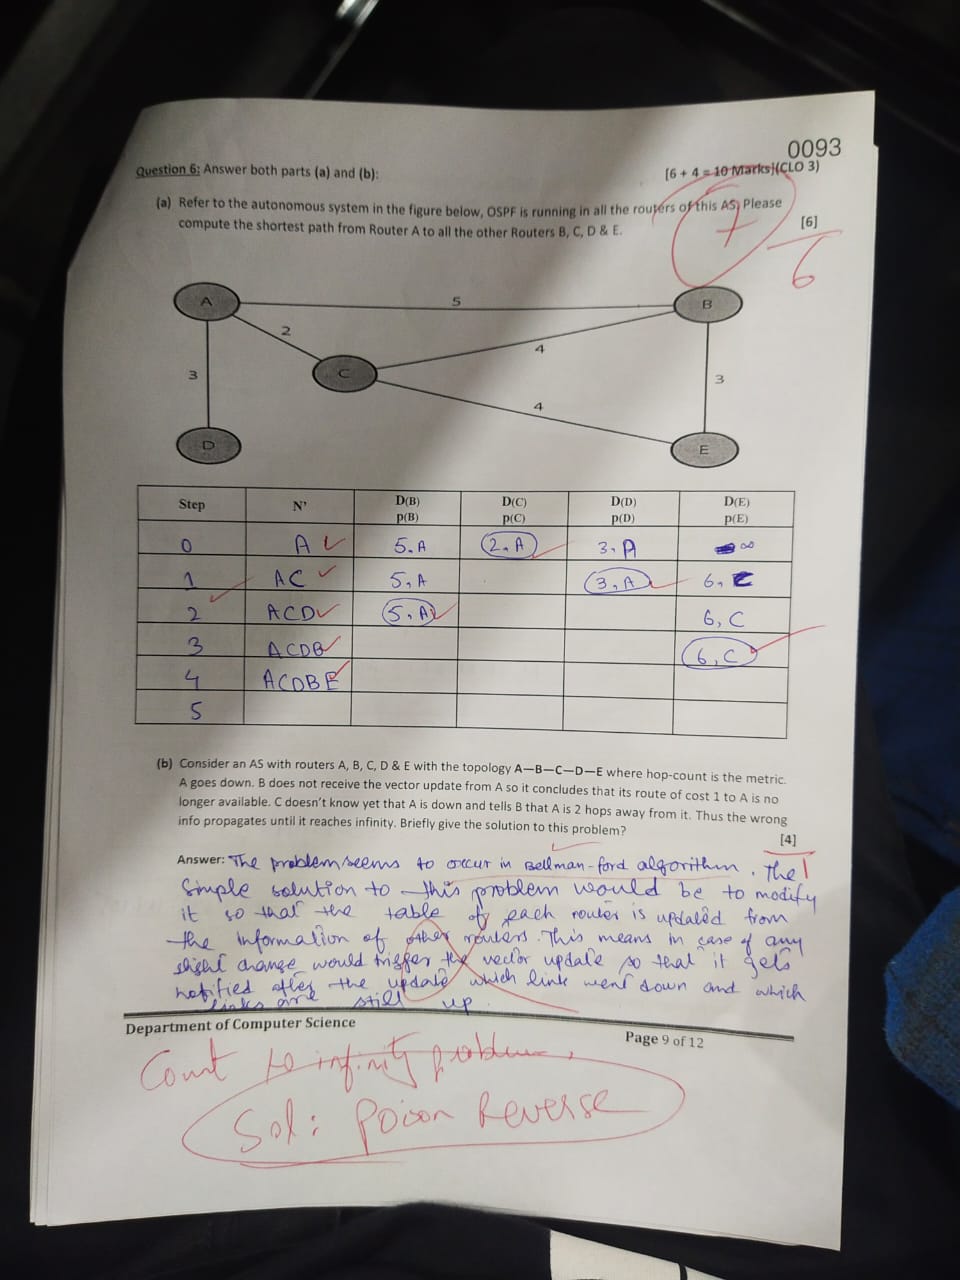 0093
Question 6: Answer both parts (a) and (b):
[6 + 4 = 10 Marks](CLO 3)
7
(a) Refer to the autonomous system in the figure below, OSPF is running in all the routers of this AS. Please
compute the shortest path from Router A to all the other Routers B, C, D & E.
[6]
6
A 5 B
2
C 4
3 3
4
D E
Step N' D(B) D(C) D(D) D(E)
p(B) p(C) p(D) p(E)
0 A 5, A 2, A 3, A ∞
1 AC 5, A 3, A 6, C
2 ACD 5, A 6, C
3 ACDB 6, C
4 ACDBE
5
(b) Consider an AS with routers A, B, C, D & E with the topology A—B—C—D—E where hop-count is the metric.
A goes down. B does not receive the vector update from A so it concludes that its route of cost 1 to A is no
longer available. C doesn't know yet that A is down and tells B that A is 2 hops away from it. Thus the wrong
info propagates until it reaches infinity. Briefly give the solution to this problem?
[4]
1
Answer: The problem seems to occur in Bellman-ford algorithm. The
simple solution to this problem would be to modify
it so that the table of each router is updated from
the information of other routers. This means in case of any
slight change would trigger the vector update so that it gets
notified after the update which link went down and which
links are still up.
Department of Computer Science
Page 9 of 12
Count to infinity problem,
Sol: Poison Reverse